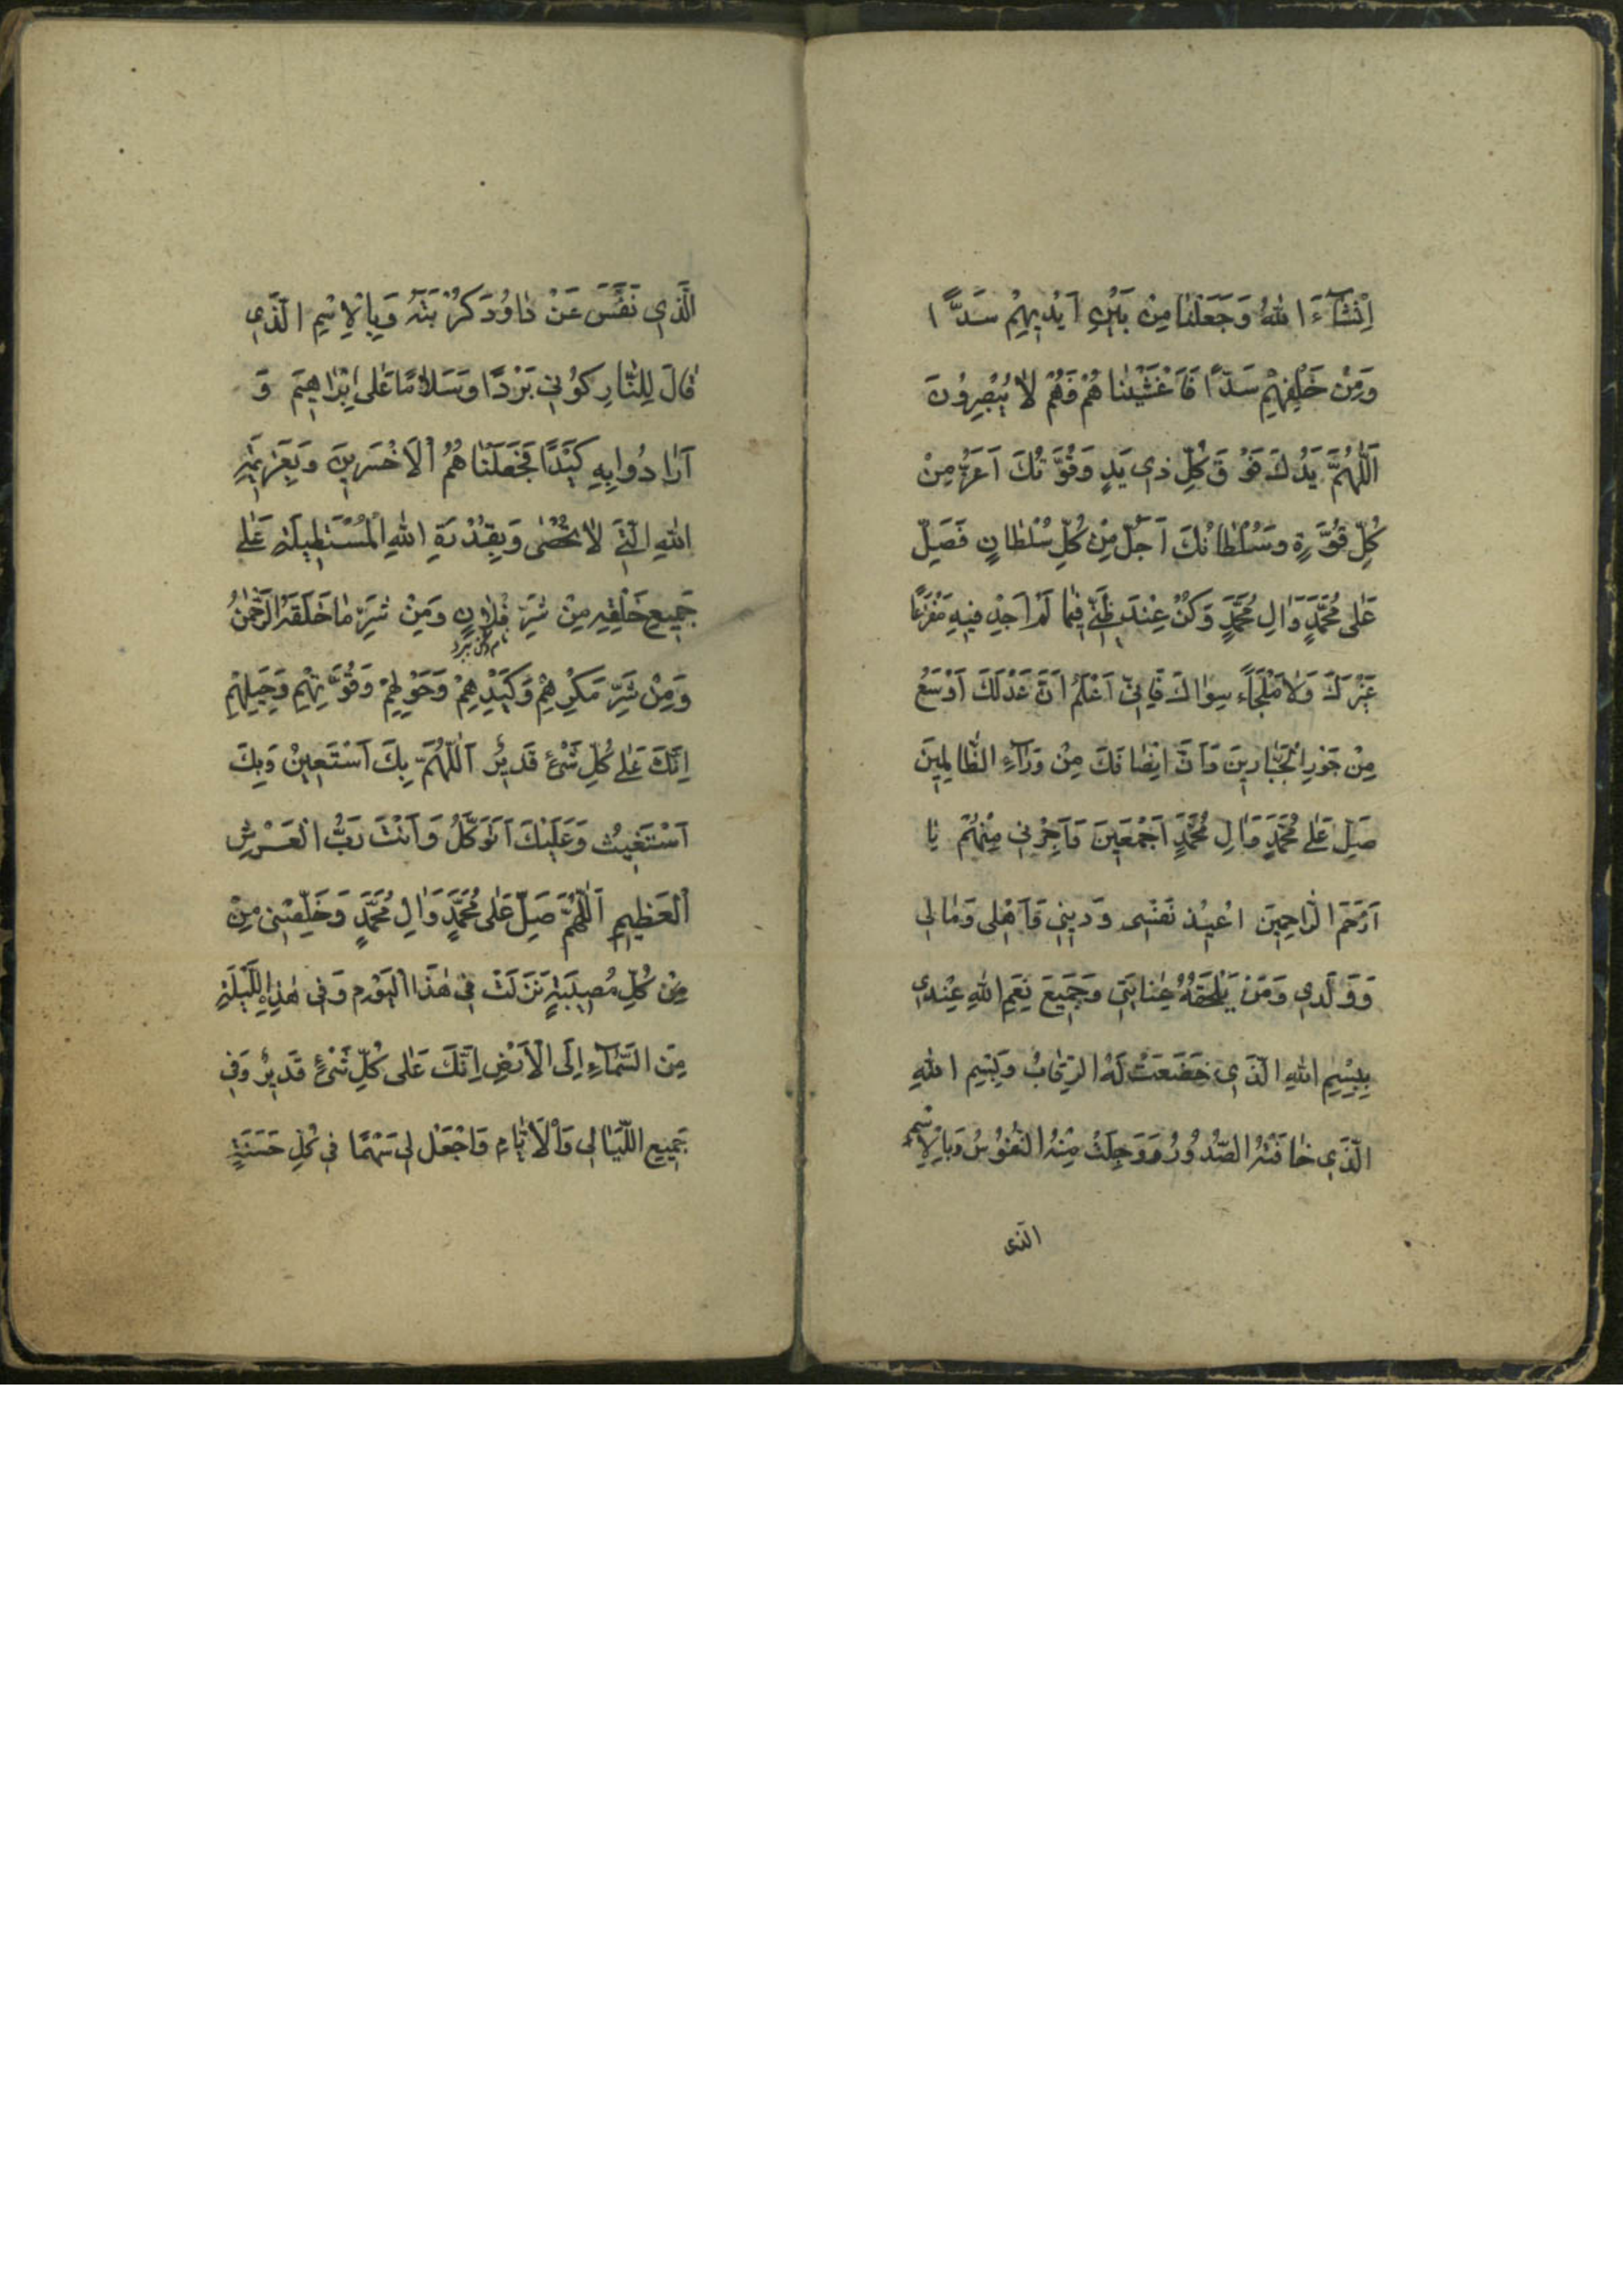 اِنْشَآءَ اللهُ وَجَعَلْنٰا مِنْ بَيْنِ اَيْدِيهِمْ سَدًّا
وَمِنْ خَلْفِهِمْ سَدًّا فَاَغْشَيْنٰا هُمْ فَهُمْ لاٰ يُبْصِرُونَ
اَللّٰهُمَّ يَدُكَ فَوْقَ كُلِّ ذِي يَدٍ وَقُوَّتُكَ اَعَزُّ مِنْ
كُلِّ قُوَّةٍ وَسُلْطٰانُكَ اَجَلُّ مِنْ كُلِّ سُلْطٰانٍ فَصَلِّ
عَلٰى مُحَمَّدٍ وَاٰلِ مُحَمَّدٍ وَكُنْ عِنْدَ ظَنّي فِيمٰا لَمْ اَجِدْ فِيهِ مَفْزَعًا
غَيْرَكَ وَلاٰ مَلْجَاءً سِوٰاكَ فَاِنّي اَعْلَمُ اَنَّ عَدْلَكَ اَوْسَعُ
مِنْ جَوْرِ الْجَبّٰارِينَ وَاَنَّ اِنْصٰافَكَ مِنْ وَرٰآءِ الظّٰالِمِينَ
صَلِّ عَلٰى مُحَمَّدٍ وَاٰلِ مُحَمَّدٍ اَجْمَعِينَ وَاَجِرْنِي مِنْهُمْ يٰا
اَرْحَمَ الرّٰاحِمِينَ اُعِيذُ نَفْسِى وَدِينِي وَاَهْلِى وَمٰالِى
وَوَلَدِي وَمَنْ يَلْحَقُهُ عِنٰايَتِي وَجَمِيعَ نِعَمِ اللهِ عِنْدِي
بِبِسْمِ اللهِ الَّذِي خَضَعَتْ لَهُ الرِّقٰابُ وَبِسْمِ اللهِ
الَّذِي خٰافَتْهُ الصُّدُورُ وَوَجِلَتْ مِنْهُ النُّفُوسُ وَبِالْاِسْمِ
الذى
الَّذِي نَفَّسَ عَنْ دٰاوُدَ كُرْبَتَهُ وَبِالْاِسْمِ الَّذِي
قٰالَ لِلنّٰارِ كُونِي بَرْدًا وَسَلاٰمًا عَلٰى اِبْرٰاهِيمَ وَ
اَرٰادُوا بِهِ كَيْدًا فَجَعَلْنٰا هُمُ الْاَخْسَرِينَ وَبِعَزِيمَةِ
اللهِ الَّتِي لاٰ تُحْصٰى وَبِقُدْرَةِ اللهِ الْمُسْتَطِيلَةِ عَلٰى
جَمِيعِ خَلْقِهِ مِنْ شَرِّ فُلاٰنٍ وَمِنْ شَرِّ مٰا خَلَقَهُ الرَّحْمٰنُ
وَمِنْ شَرِّ مَكْرِهِمْ وَكَيْدِهِمْ وَحَوْلِهِمْ وَقُوَّتِهِمْ وَحِيَلِهِمْ
اِنَّكَ عَلٰى كُلِّ شَىْءٍ قَدِيرٌ اَللّٰهُمَّ بِكَ اَسْتَعِينُ وَبِكَ
اَسْتَغِيثُ وَعَلَيْكَ اَتَوَكَّلُ وَاَنْتَ رَبُّ الْعَرْشِ
الْعَظِيمِ اَللّٰهُمَّ صَلِّ عَلٰى مُحَمَّدٍ وَاٰلِ مُحَمَّدٍ وَخَلِّصْنِي مِنْ
مِنْ كُلِّ مُصِيبَةٍ نَزَلَتْ فِي هٰذَا الْيَوْمِ وَفِي هٰذِهِ اللَّيْلَةِ
مِنَ السَّمٰآءِ اِلَى الْاَرْضِ اِنَّكَ عَلٰى كُلِّ شَىْءٍ قَدِيرٌ وَفِي
جَمِيعِ اللَّيٰالِي وَالْاَيّٰامِ وَاجْعَلْ لِي سَهْمًا فِي كُلِّ حَسَنَةٍ